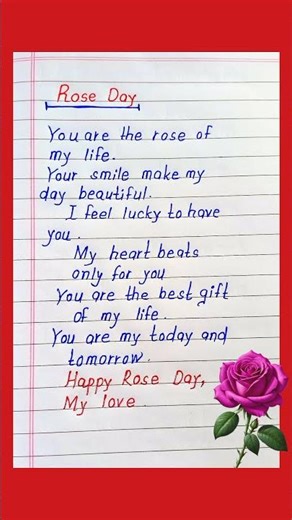 Rose Day
You are the rose of
my life.
Your smile make my
day beautiful.
I feel lucky to have
you.
My heart beats
only for you
You are the best gift
of my life.
You are my today and
tomorrow.
Happy Rose Day,
My love